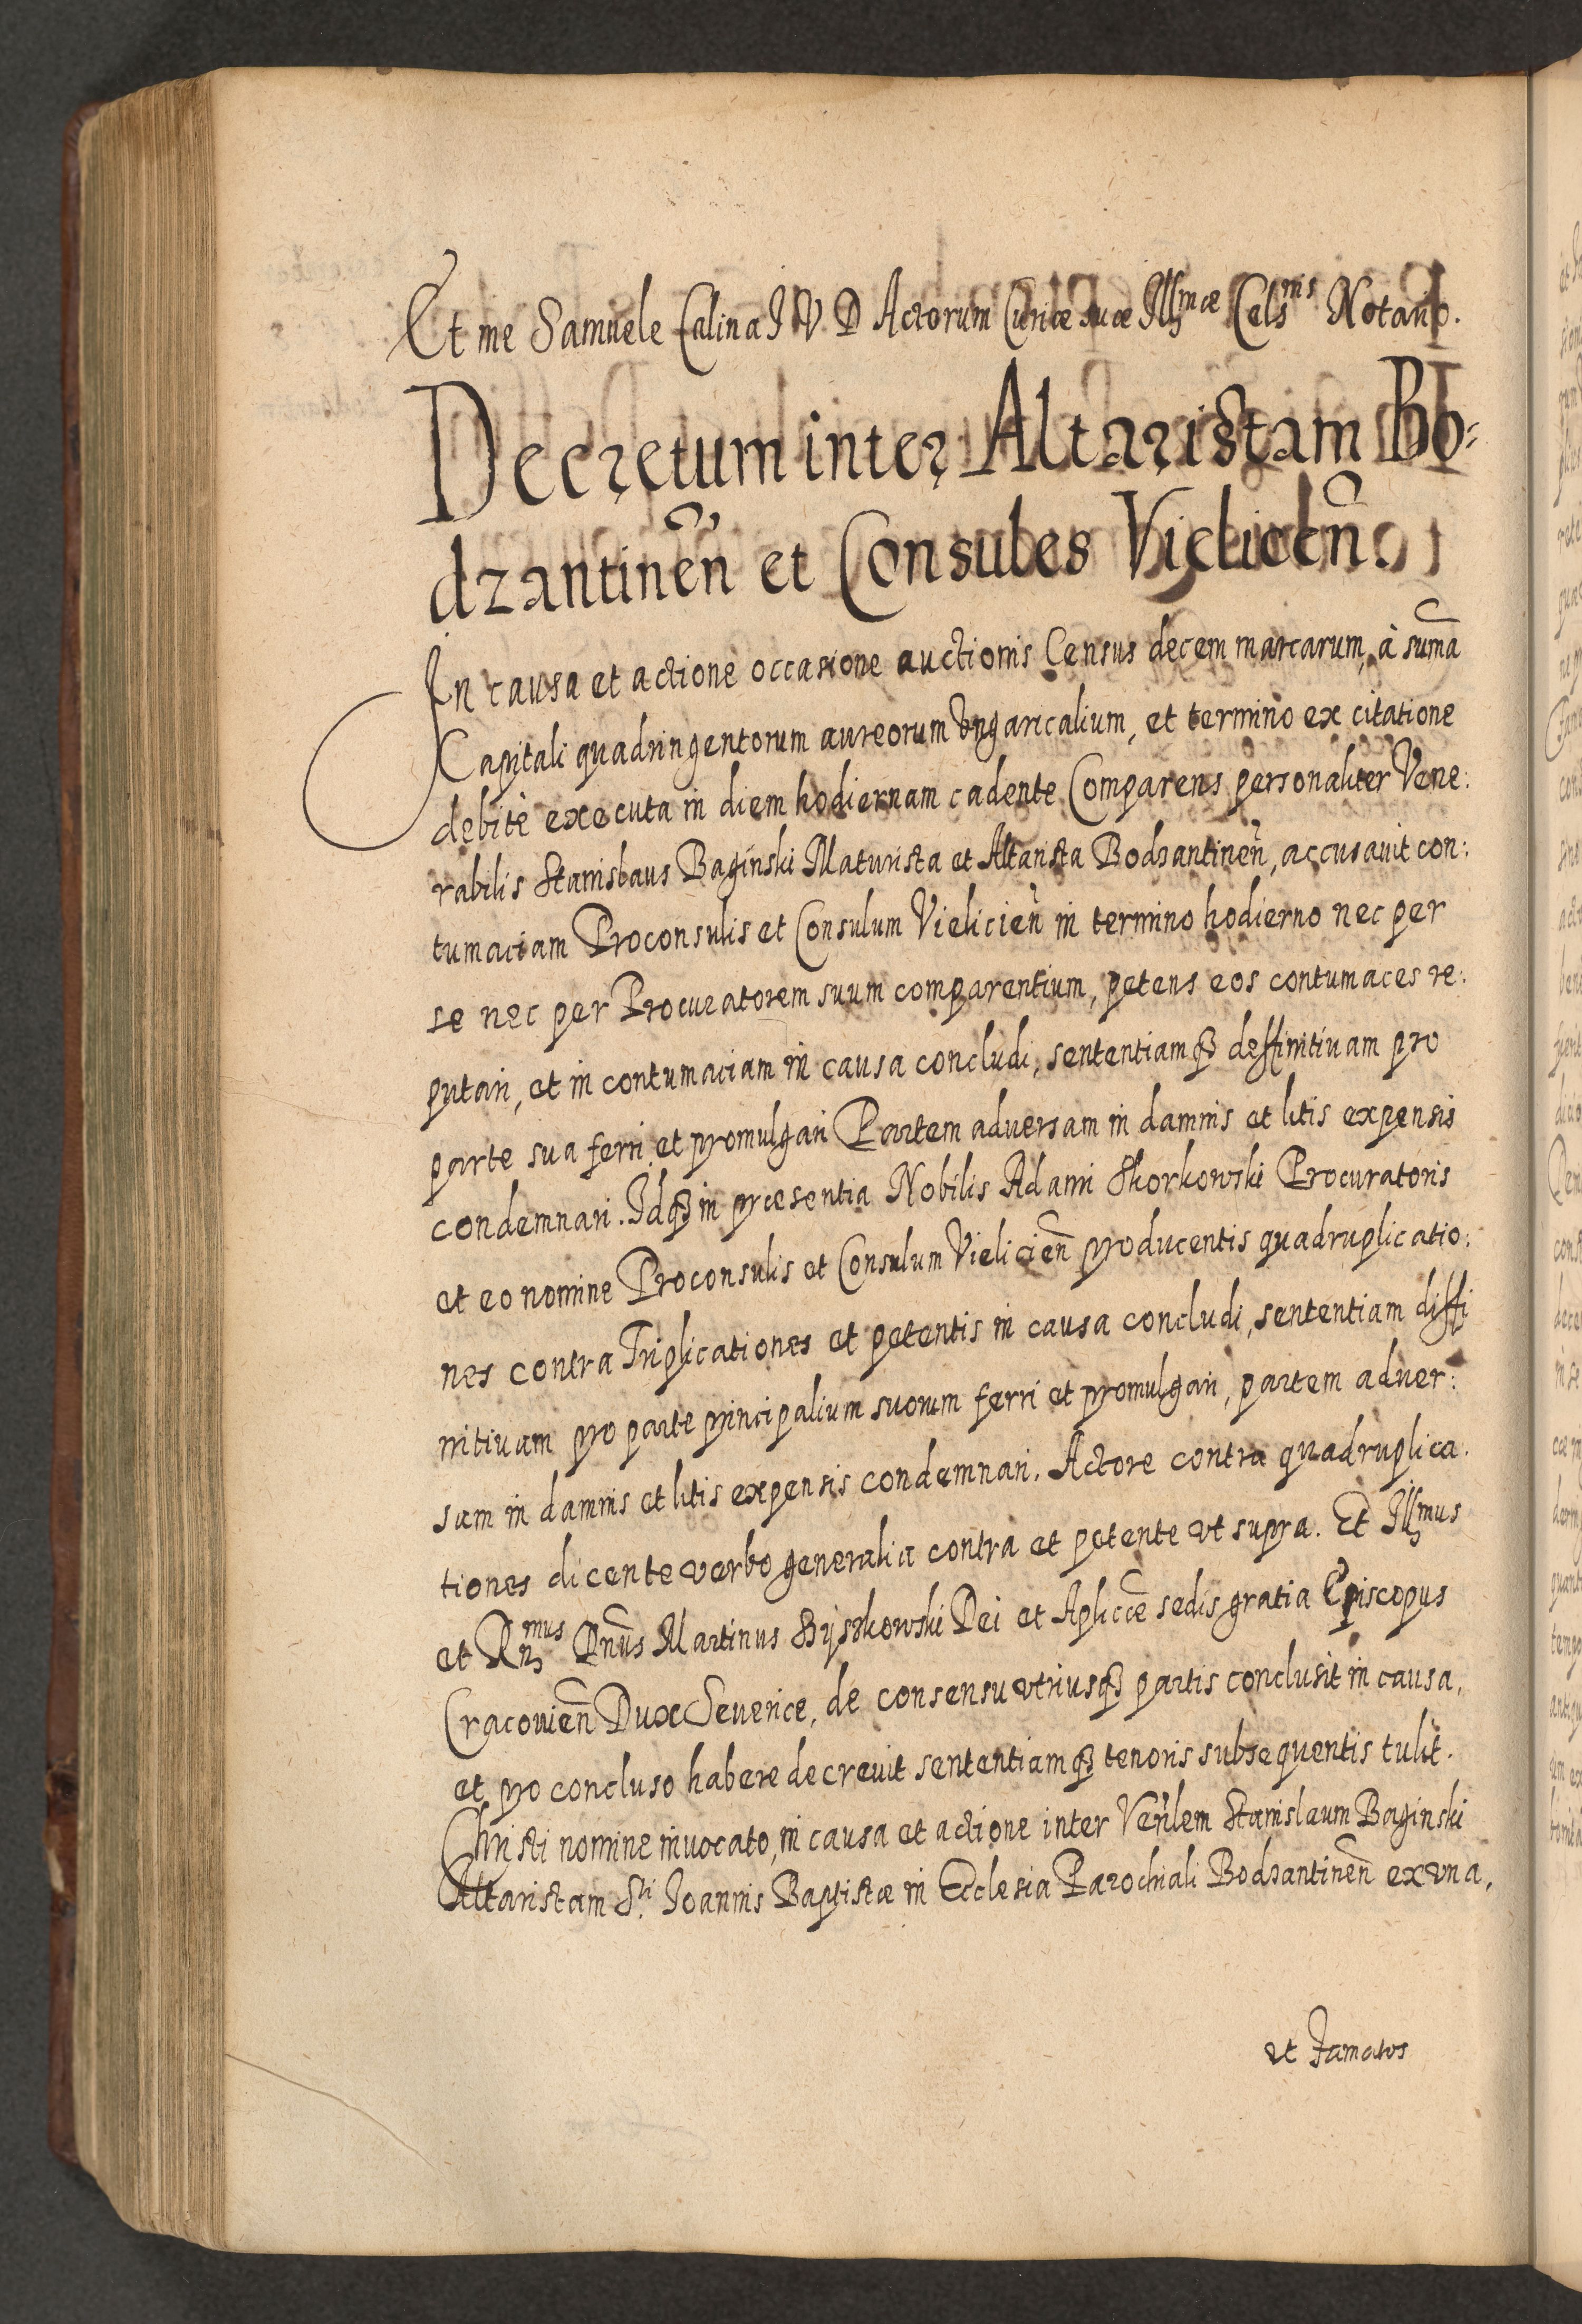 Et me Samuele Calina I V D Actorum Curiæ suæ Illmæ Celsnis Notario.
Decretum inter Altaristam Bo-
dzantinen̄ et Consules Vielicen̄.
In causa et actione occasione auctionis Census decem marcarum, à sum̄a
Capitali quadringentorum aureorum Vngaricalium, et termino ex citatione
debitè executa in diem hodiernam cadente Comparens personaliter Vene:
rabilis Stanislaus Baginski Maturista et Altarista Bodzantinen̄, accusauit con:
tumaciam Proconsulis et Consulum Vielicien̄ in termino hodierno nec per
se nec per Procuratorem suum comparentium, petens eos contumaces re:
putari, et in contumaciam in causa concludi, sententiamqȝ deffinitiuam pro
parte sua ferri et promulgari Partem aduersam in damnis et litis expensis
condemnari. Idqȝ in præsentia Nobilis Adami Skorkowski Procuratoris
et eo nomine Proconsulis et Consulum Vielicien̄ producentis quadruplicatio:
nes contra Triplicationes et petentis in causa concludi, sententiam diffi
nitiuam pro parte principalium suorum ferri et promulgari, partem aduer:
sam in damnis et litis expensis condemnari. Actore contra quadruplica.
tiones dicente verbo generalia contra et petente vt supra. Et Illmus
et Rnmus Dn̄us Martinus Szyszkowski Dei et Aplicæ sedis gratia Episcopus
Cracouien̄ Dux Seueriæ, de consensu vtriusqȝ partis conclusit in causa,
et pro concluso habere decreuit sententiamqȝ tenoris subsequentis tulit.
Christi nomine inuocato, in causa et actione inter Ven̄lem Stanislaum Baginski
Altaristam Sti Ioannis Baptistæ in Ecclesia Parochiali Bodzantinen̄ ex vna,
et Famatos